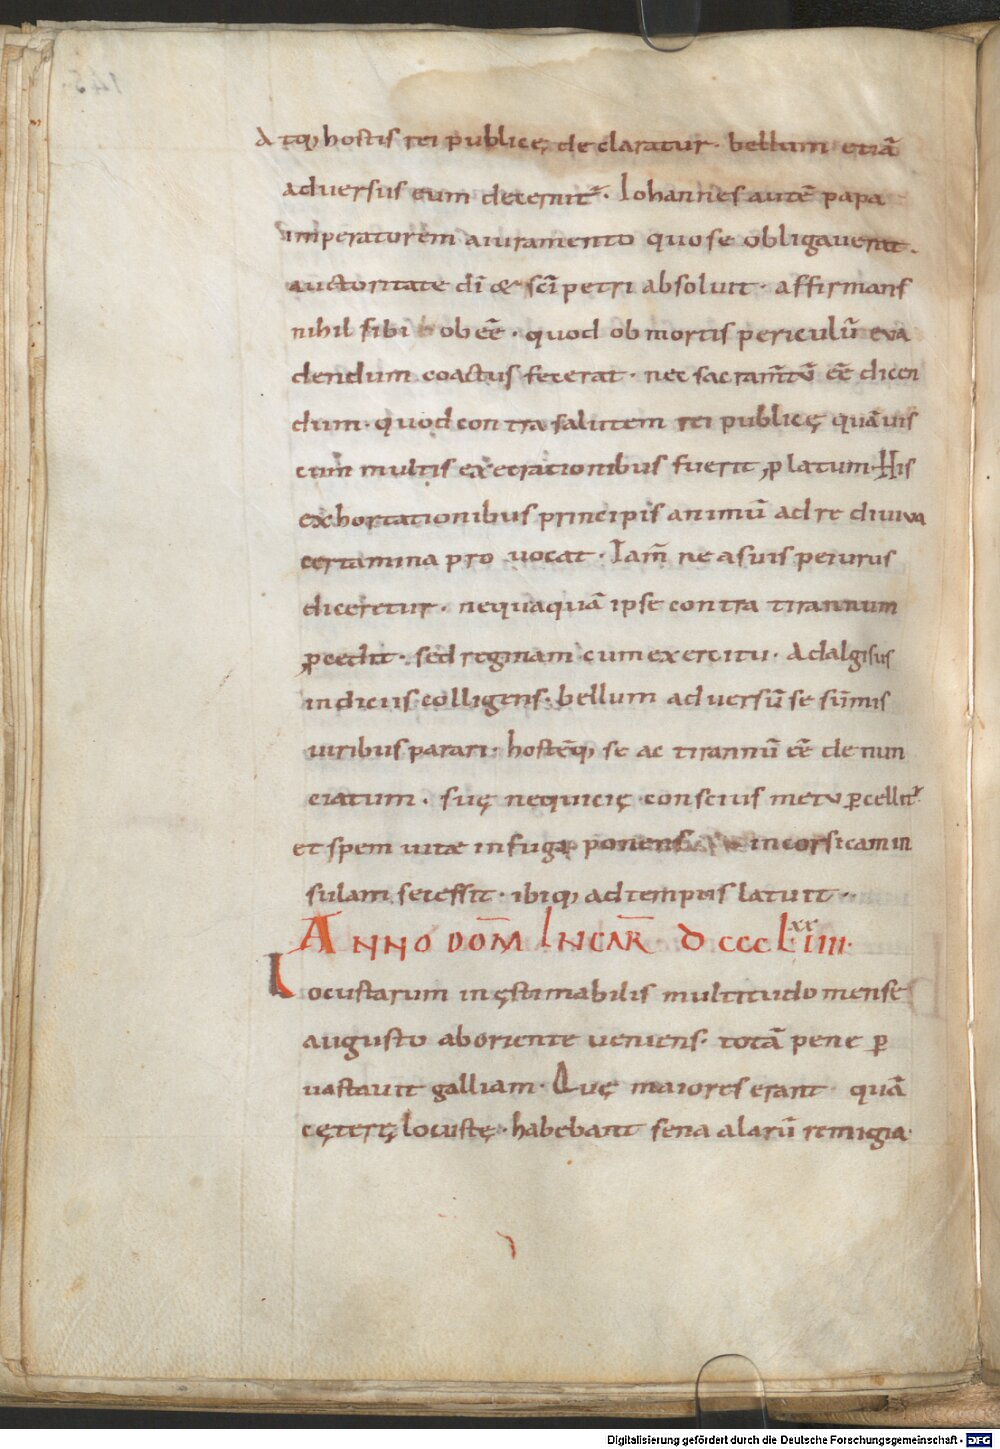 Atq; hostis rei publicę declaratur· bellum etiā
adversus eum decernit᷑· Iohannes autē papa
imperatorem a iuramento quo se obligaverat·
auctoritate dī & sc̄i petri absoluit· affirmans
nihil sibi obeē· quod ob mortis periculū eva
dendum coactus fecerat· nec sacram̄tū eē dicen
dum· quod contra salutem rei publicę quāuis
cum multis exetrationibus fuerit ꝓlatum· His
exhortationibus principis animū ad rediviva
certamina provocat· Iam̄ ne a suis peiurus
diceretur· nequaquā ipse contra tirannum
ꝓcedit· sed reginam cum exercitu· Adalgisus
indiciis colligens· bellum adversū se sūmis
viribus parari· hostēq; se ac tirannū eē denun
ciatum· suę nequicię conscius metu ꝑcellit᷑·
et spem vitae in fuga ponens in corsicam in
sulam secessit· ibiq; ad tempus latuit··
ANNO DOM̄ INCAR̄ DCCCLxxIIII·
Locustarum inęstimabilis multitudo mense
augusto ab oriente veniens· totā pene ꝑ
vastavit galliam· Quę maiores erant quā
cęterę locustę· habebant sena alarū remigia·
Digitalisierung gefördert durch die Deutsche Forschungsgemeinschaft - DFG